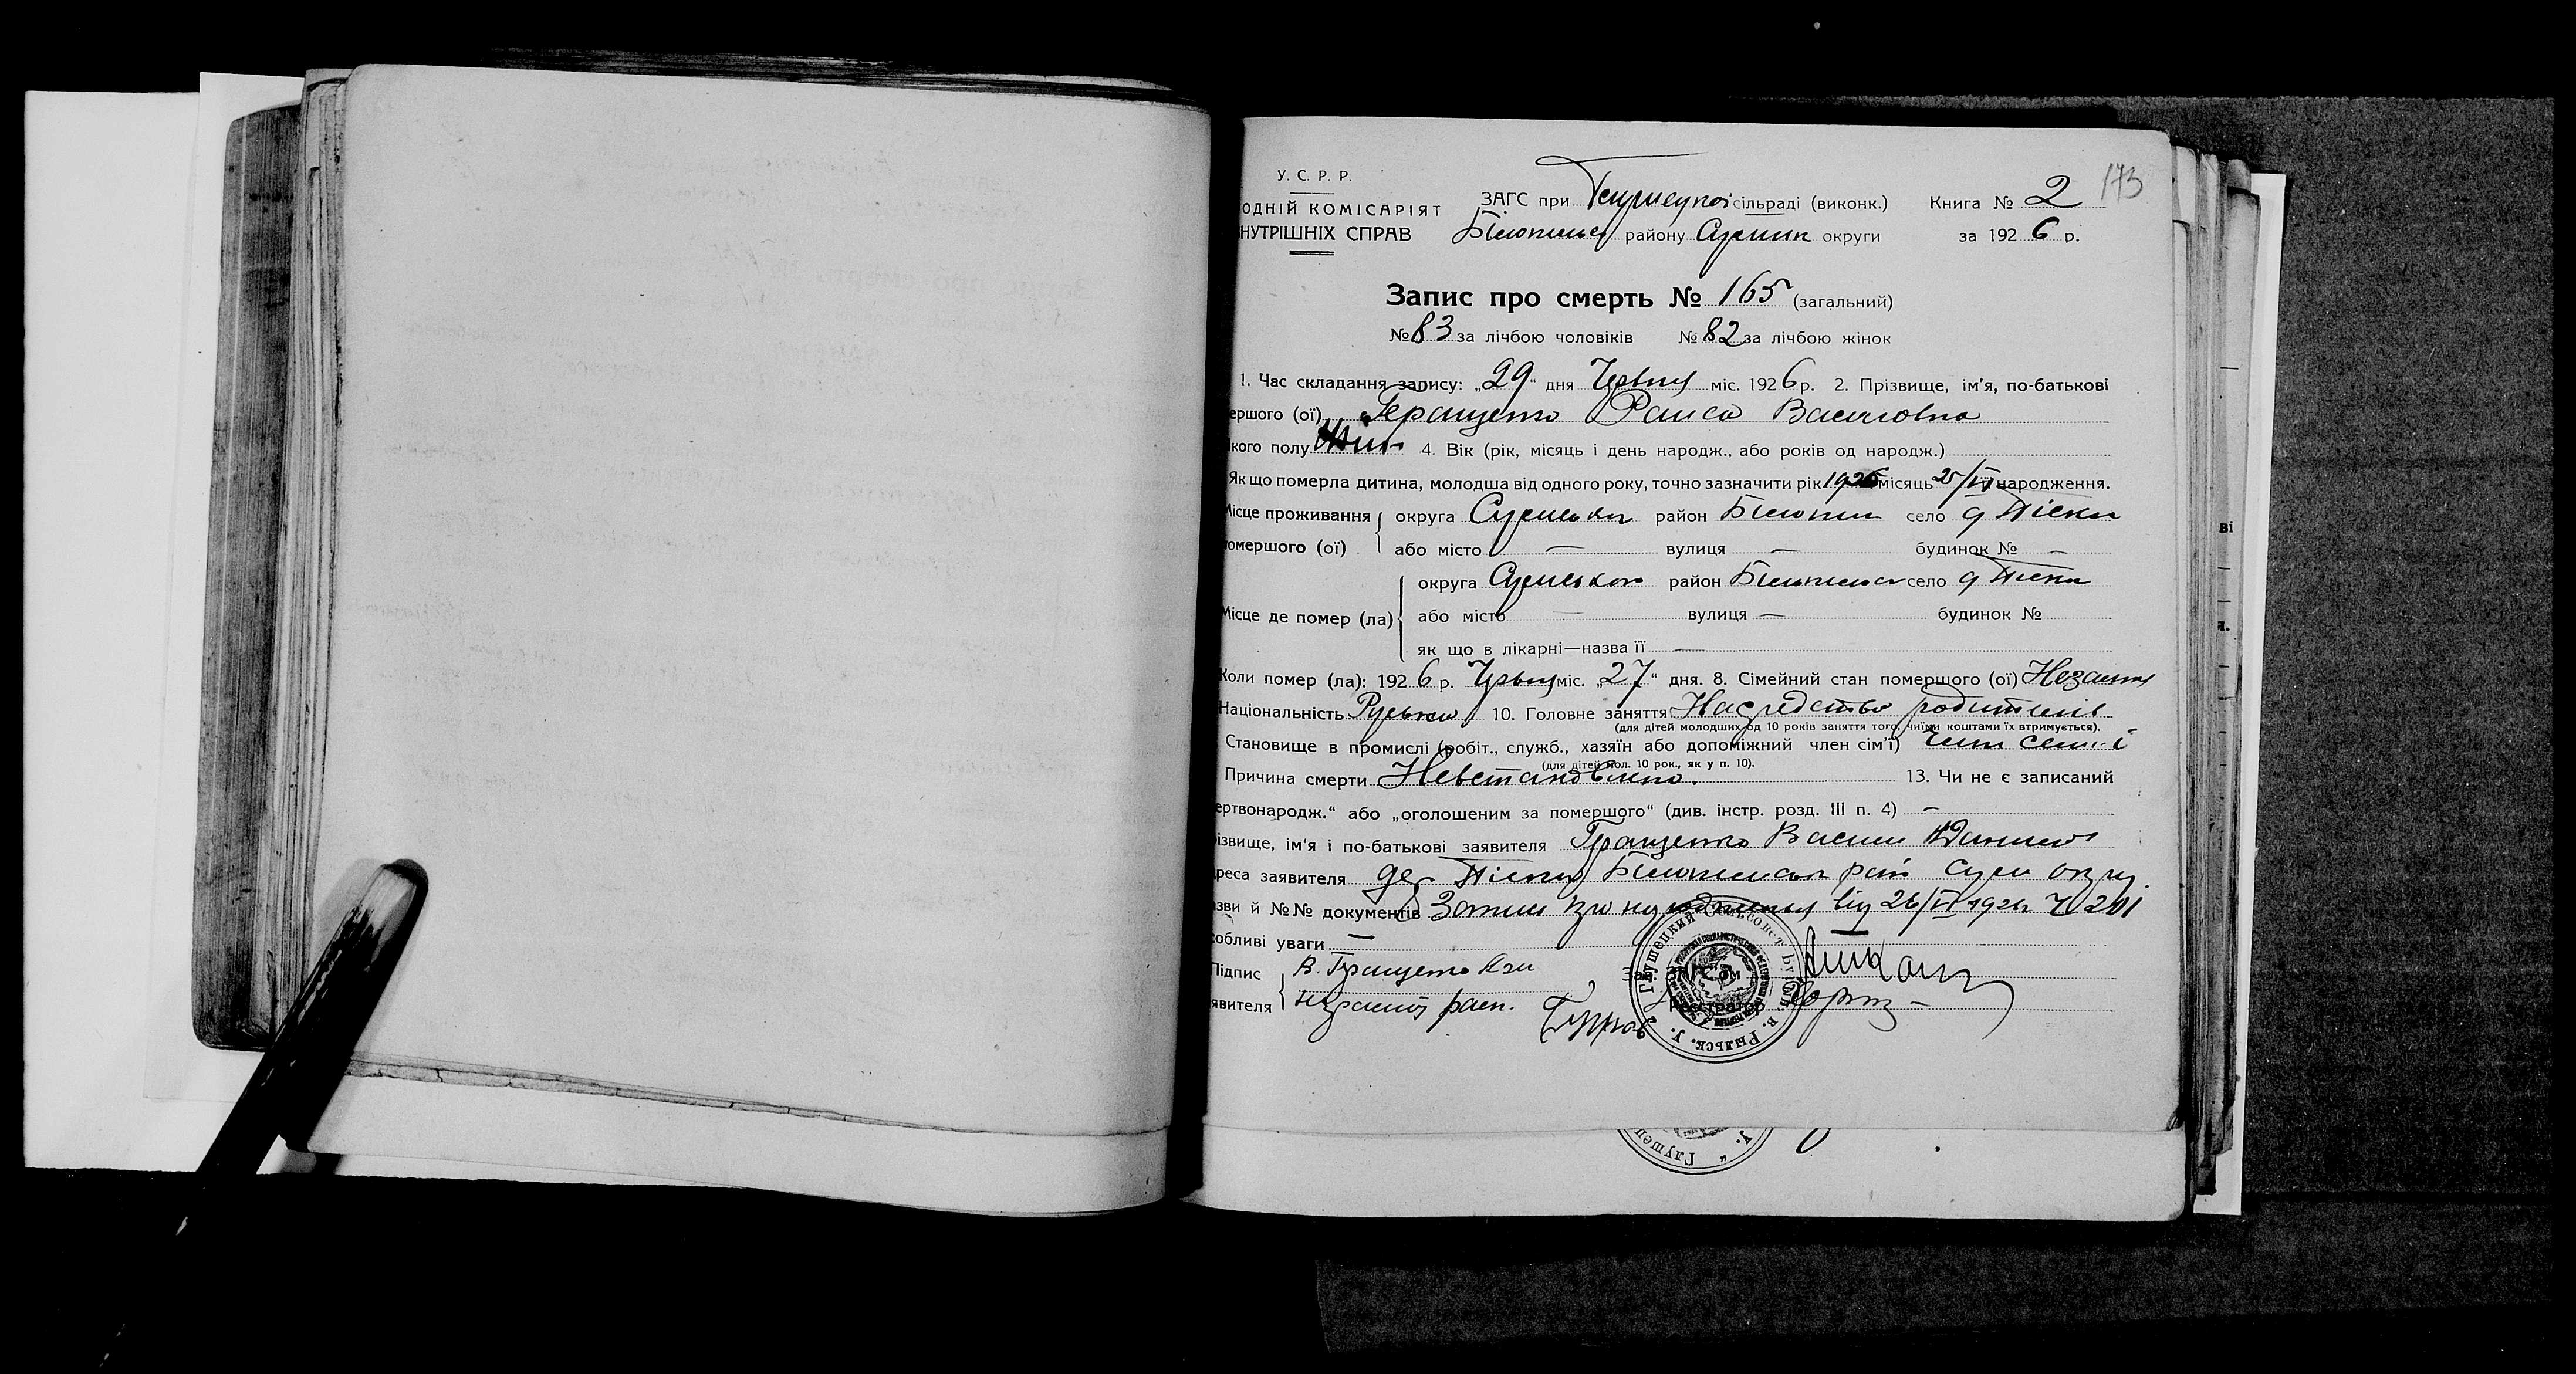 173
У. С. Р. Р.
ОДНІЙ КОМІСАРІЯТ
НУТРІШНІХ СПРАВ
ЗАГС при сільраді (виконк.) Книга № 2
району Сумськ округи за 1926 р.
Запис про смерть № 165 (загальний)
№ 83 за лічбою чоловіків № 82 за лічбою жінок
1. Час складання запису: „29“ дня Червня міс. 1926 р. 2. Прізвище, ім'я, по-батькові
ершого (ої) Геращенко Раиса Василовна
кого полу Жін 4. Вік (рік, місяць і день народж., або років од народж.)
Як що померла дитина, молодша від одного року, точно зазначити рік 1926 місяць 25/VI народження.
Місце проживання округа Сумська район Білопил село д Піски
омершого (ої) або місто — вулиця — будинок № —
округа Сумська район Білопільск село д Піски
Місце де помер (ла) або місто — вулиця — будинок №
як що в лікарні—назва її —
Коли помер (ла): 1926 р. Червня міс. „27“ дня. 8. Сімейний стан помершого (ої)
Національність Руська 10. Головне заняття На средство родителів
(для дітей молодших од 10 років заняття того, чиїми коштами їх втримується).
Становище в промислі (робіт., служб., хазяїн або допоміжний член сім'ї) член семї
(для дітей мол. 10 рок., як у п. 10).
Причина смерти Невстановлено. 13. Чи не є записаний
ертвонародж.“ або „оголошеним за помершого“ (див. інстр. розд. III п. 4) —
ізвище, ім'я і по-батькові заявителя Геращенко Васил Данилов
реса заявителя дер Піски Білопильськ рай Сум округ.
зви й №№ документів Запис про народження від 26/VI 1926 Ч 201
обливі уваги —
Підпис В. Геращенко
явителя неграмот расп.
Зав. ЗАГС'ом
Реєстратор
Глушецкий Сельсовет Рыльск. у.
Глушец
у.
ві
я.